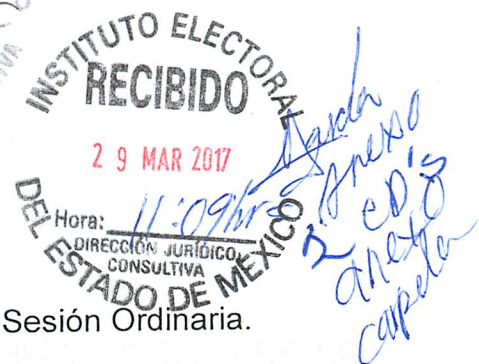 INSTITUTO ELECTORAL
RECIBIDO
29 MAR 2017
Hora: 11:09hrs
DIRECCIÓN JURÍDICO
CONSULTIVA
DEL ESTADO DE MÉXICO
anexo
2 CD's
anexo
carpeta
Sesión Ordinaria.